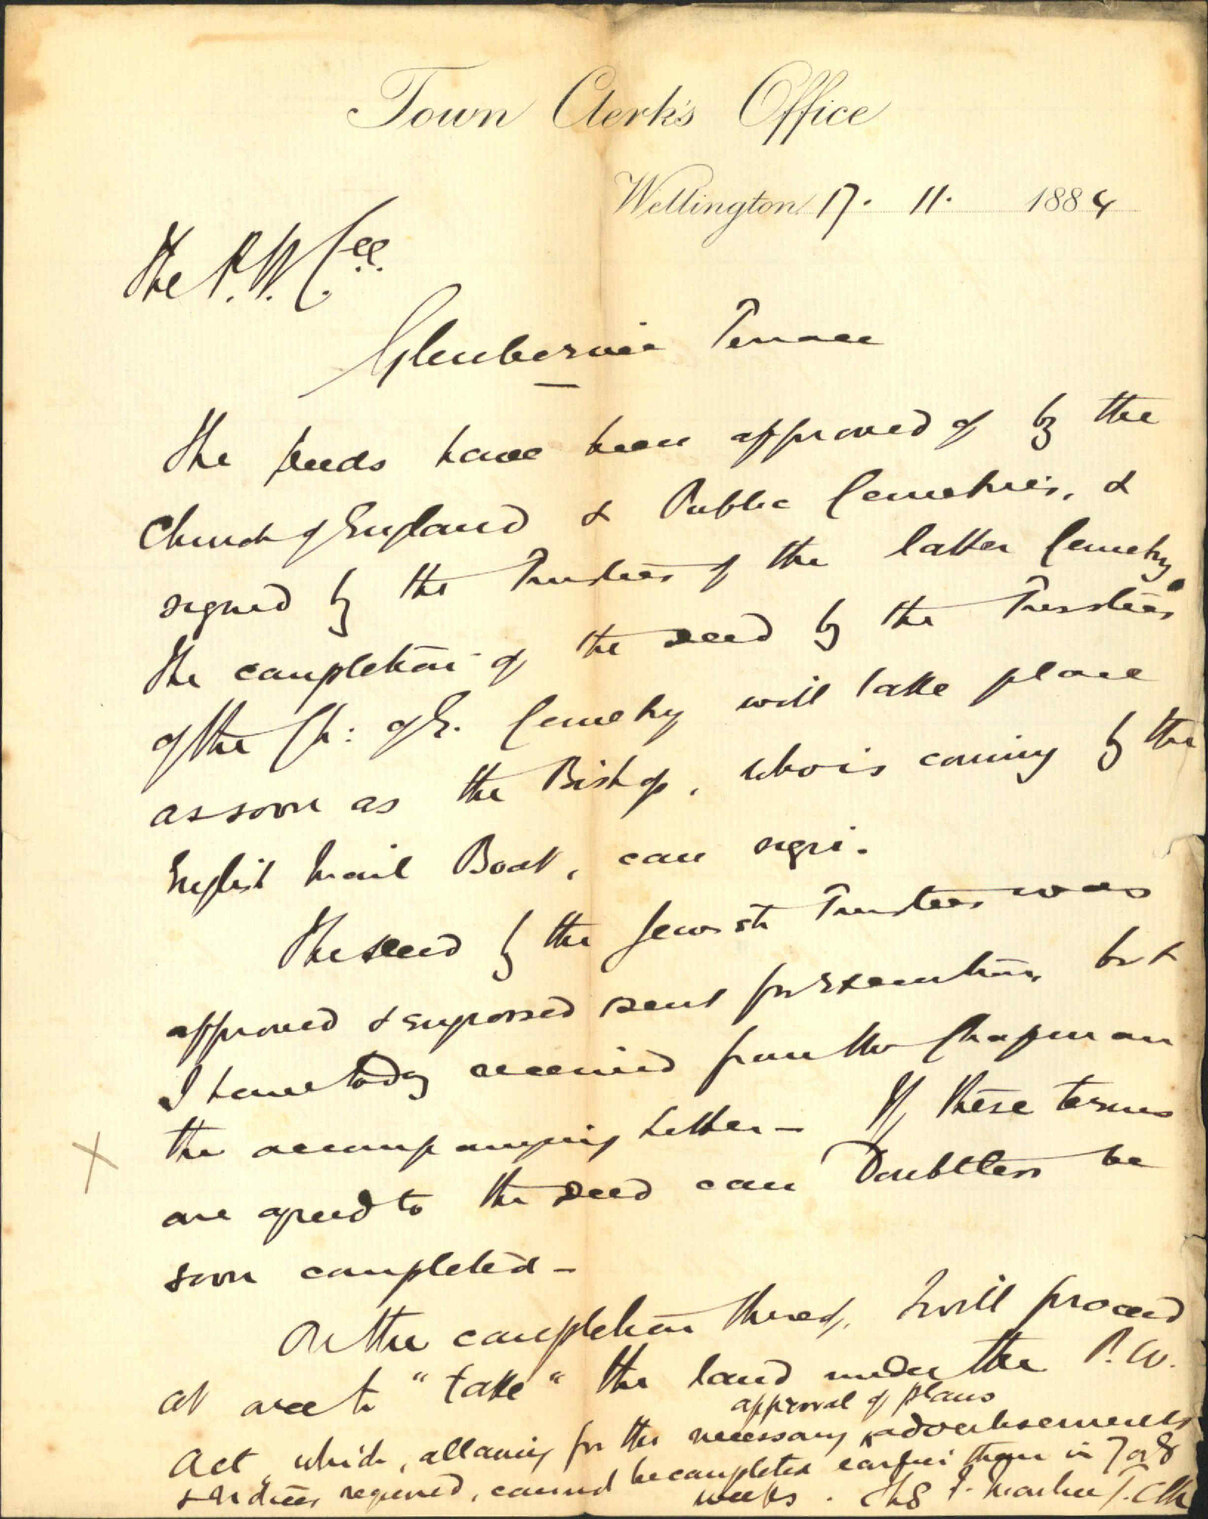 Town Clerk's Office
Wellington 17. 11. 1884
The P. W. Cee.
Glenbervie Terrace
The deeds have been approved of by the
Church of England & Public Cemeteries, &
signed by the Trustees of the latter Cemetery.
The completion of the deed by the Trustees
of the Ch: of E. Cemetery will take place
as soon as the Bishop, who is coming by the
English Mail Boat, can sign.
The deed by the Jewish Trustees was
approved & engrossed sent for execution, but
I have today received from Mr Chapman
the accompanying letter – If these terms
are agreed to the deed can Doubtless be
soon completed –
On the completion thereof, I will proceed
at once to "take" the land under the P. W.
approval of plans
Act which, allowing for the necessary advertisements
& notices required, cannot be completed earlier than in 7 or 8
weeks. T. Clk